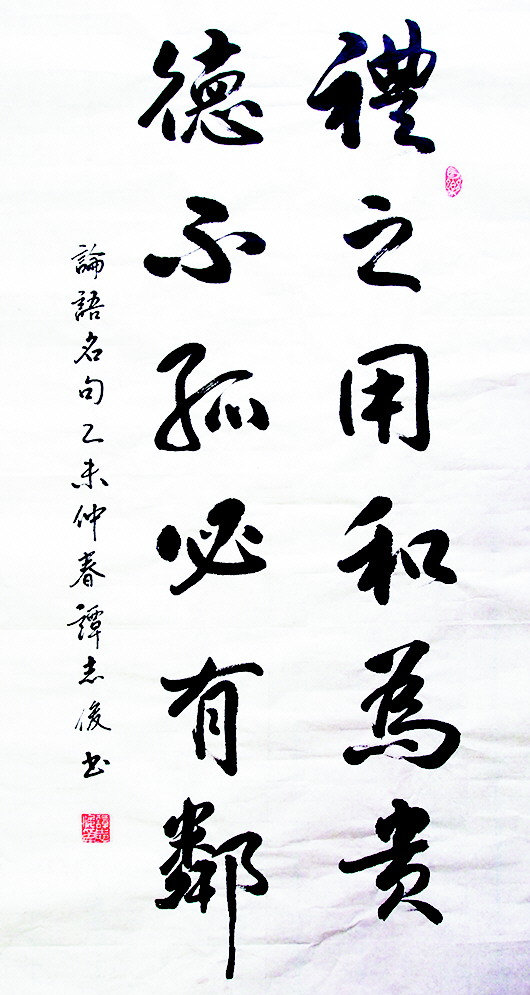 禮之用和為貴
德不孤必有鄰
論語名句乙未仲春譚志俊书